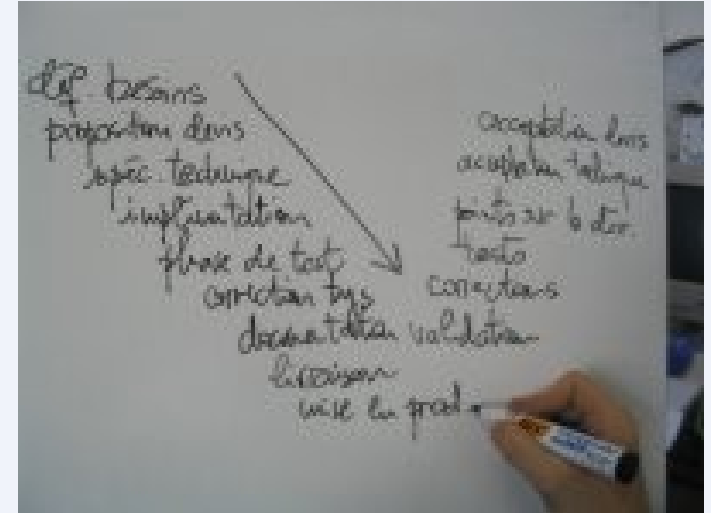 déf. besoins
proposition devis
spéc. technique
implémentation
phase de test
correction bugs
documentation
livraison
mise en prod.
acceptation devis
acceptation technique
points sur le dev.
tests
corrections
validation